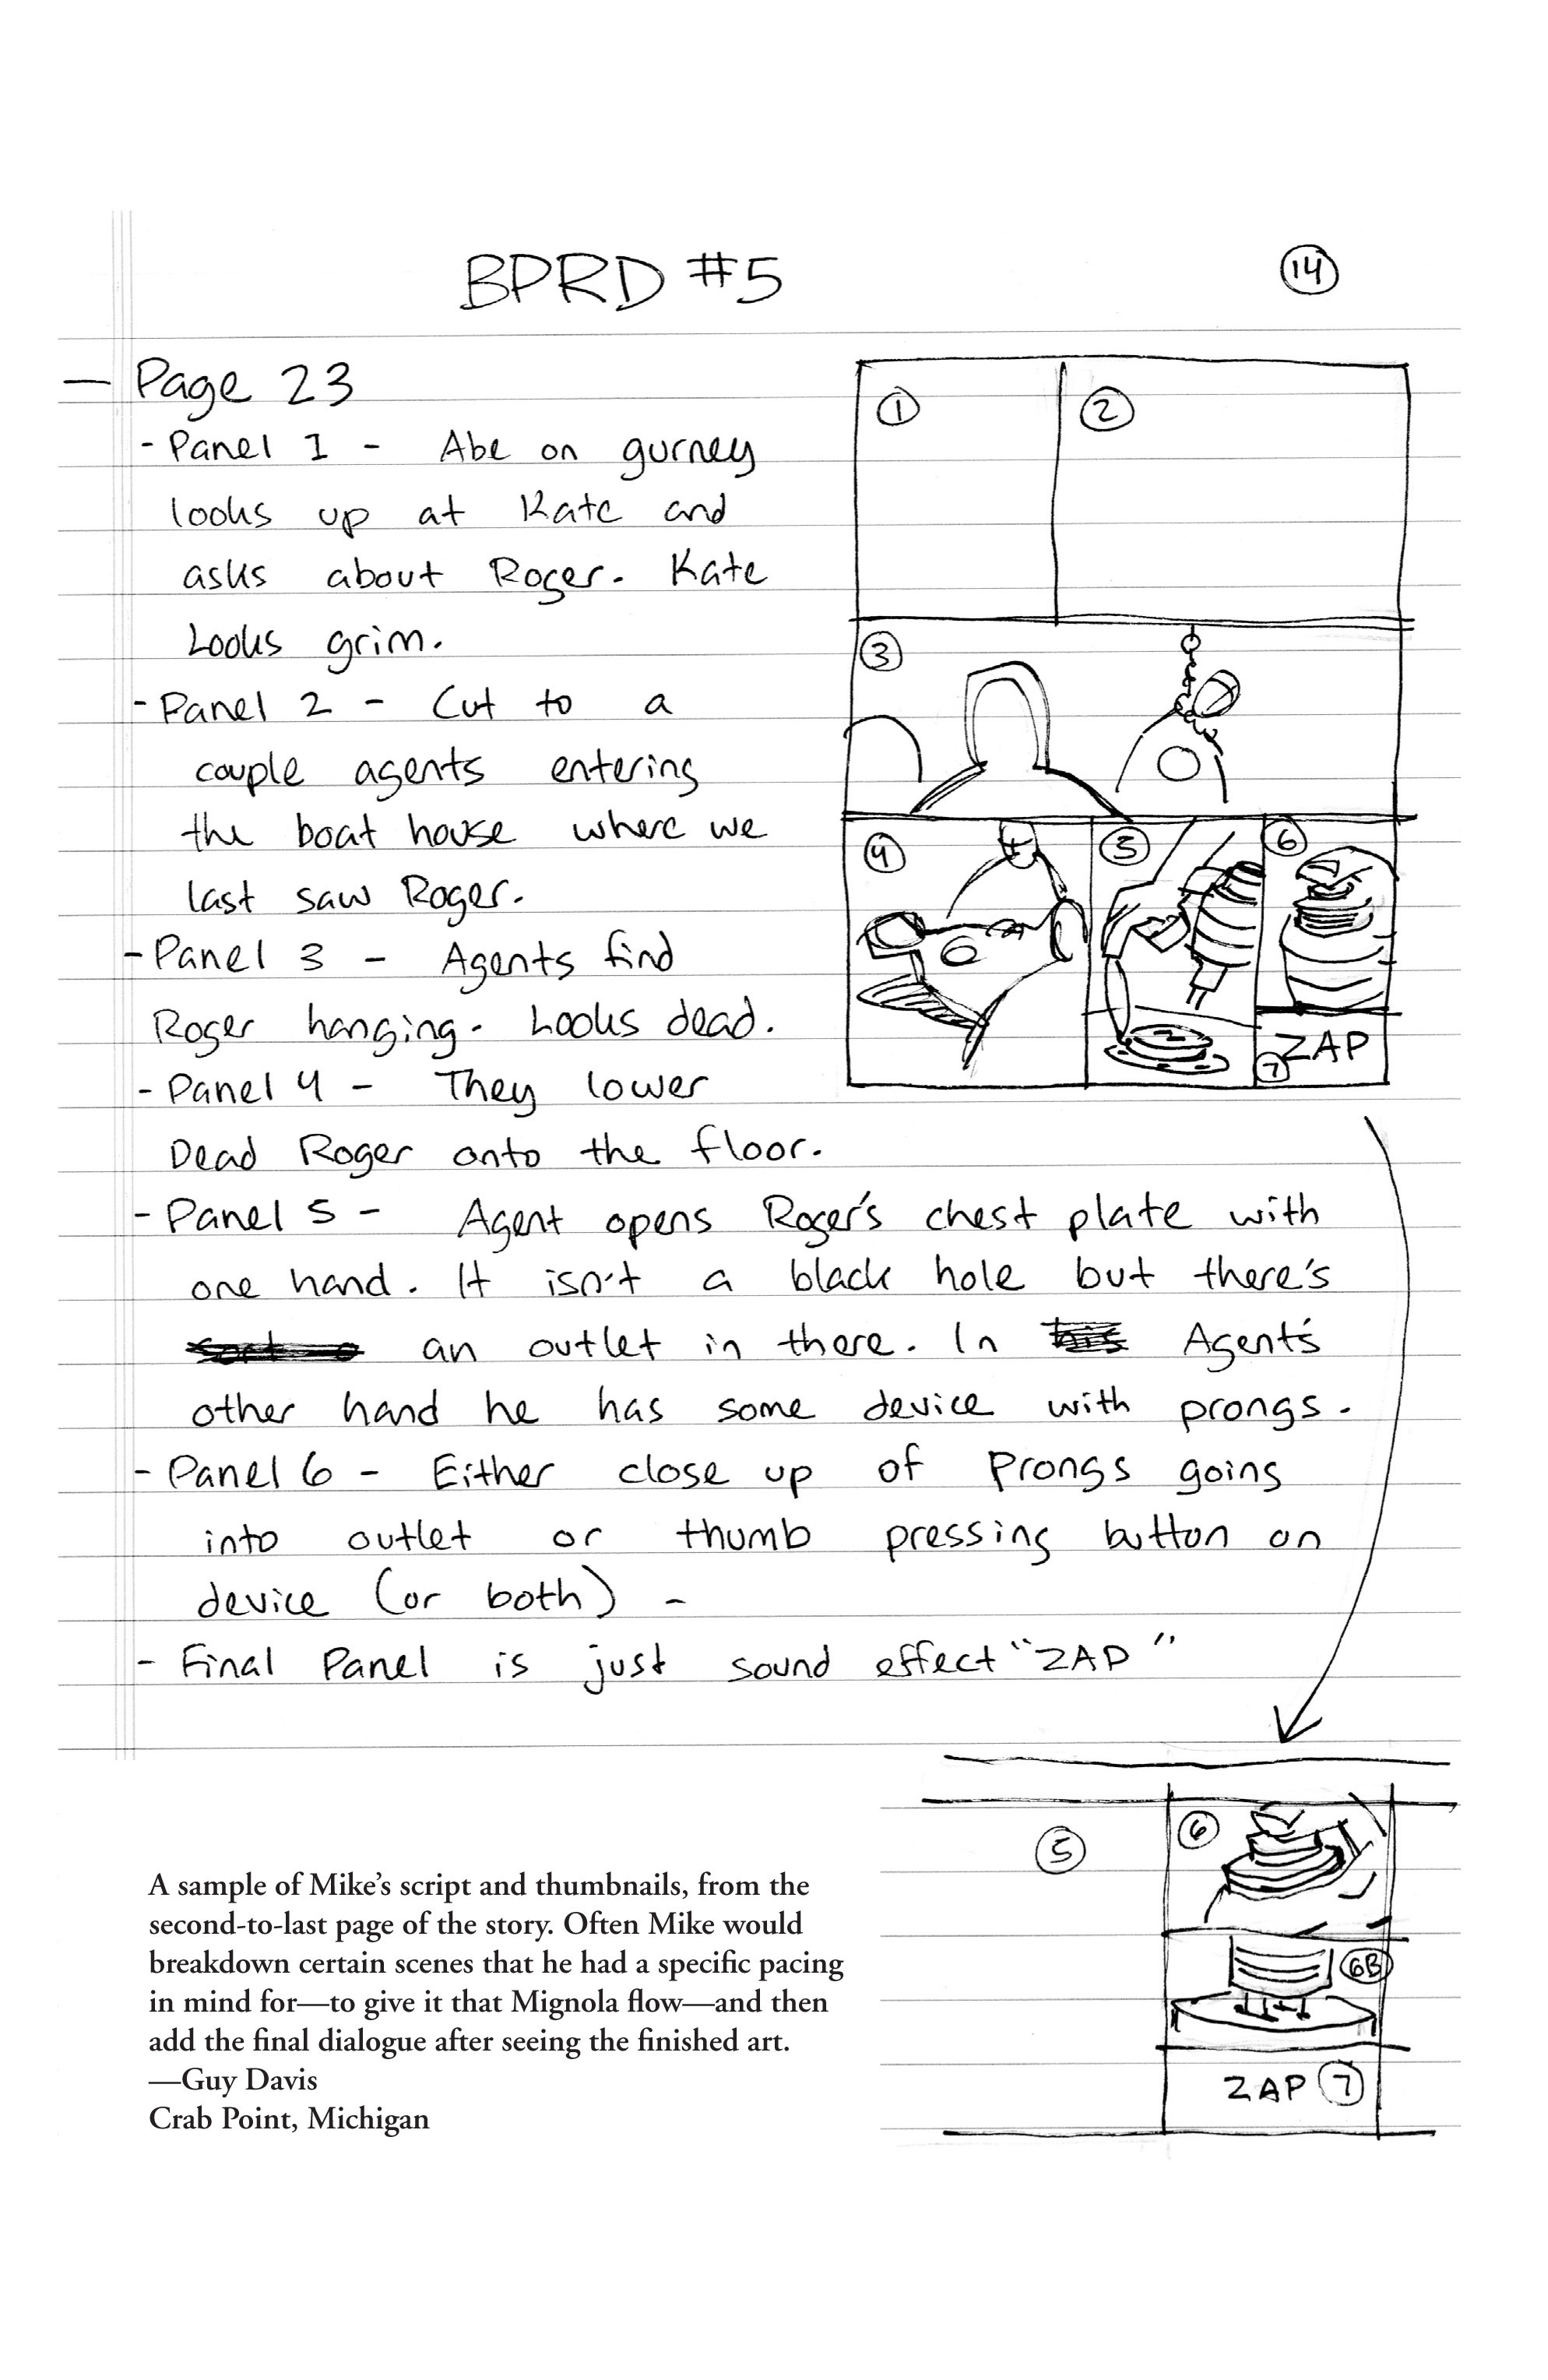 BPRD #5
14
— Page 23
- Panel 1 - Abe on gurney
looks up at Kate and
asks about Roger. Kate
Looks grim.
- Panel 2 - Cut to a
couple agents entering
the boat house where we
last saw Roger.
- Panel 3 - Agents find
Roger hanging. Looks dead.
- Panel 4 - They lower
Dead Roger onto the floor.
- Panel 5 - Agent opens Roger's chest plate with
one hand. It isn't a black hole but there's
an outlet in there. In Agent's
other hand he has some device with prongs.
- Panel 6 - Either close up of Prongs going
into outlet or thumb pressing button on
device (or both) -
- Final Panel is just sound effect "ZAP"
1
2
3
4
5
6
ZAP
7
5
6
6B
ZAP 7
A sample of Mike's script and thumbnails, from the
second-to-last page of the story. Often Mike would
breakdown certain scenes that he had a specific pacing
in mind for—to give it that Mignola flow—and then
add the final dialogue after seeing the finished art.
—Guy Davis
Crab Point, Michigan